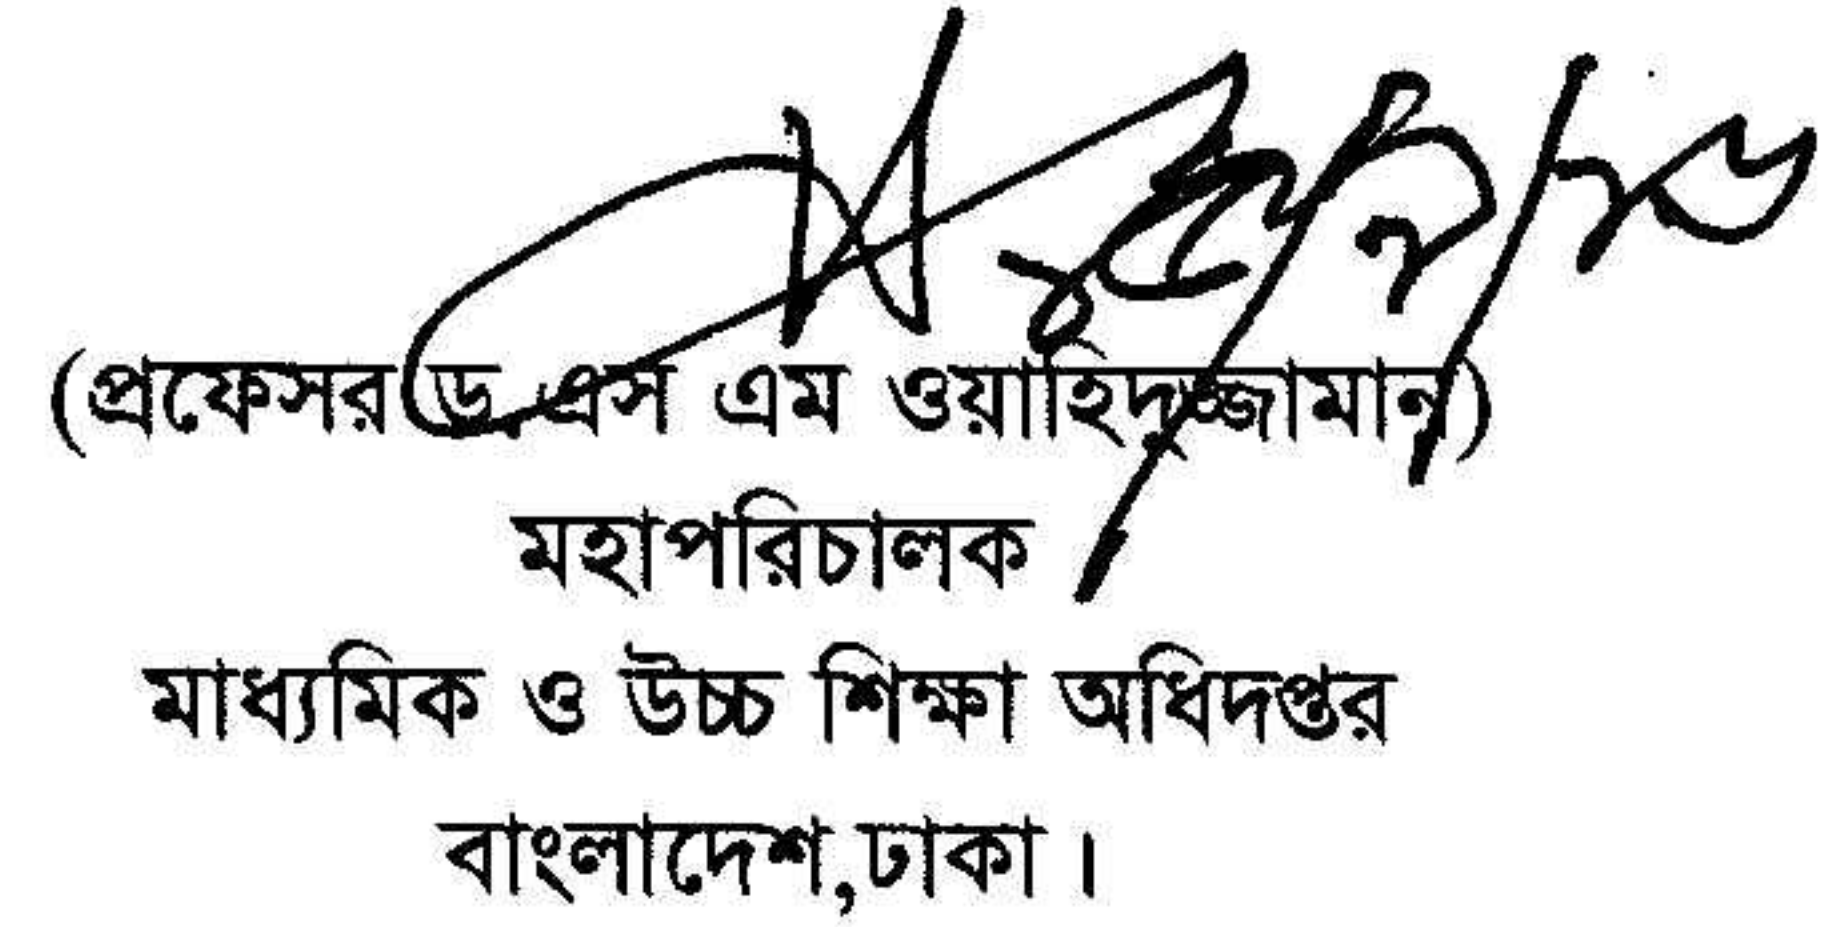 (প্রফেসর ড. এস এম ওয়াহিদুজ্জামান)
মহাপরিচালক
মাধ্যমিক ও উচ্চ শিক্ষা অধিদপ্তর
বাংলাদেশ,ঢাকা।